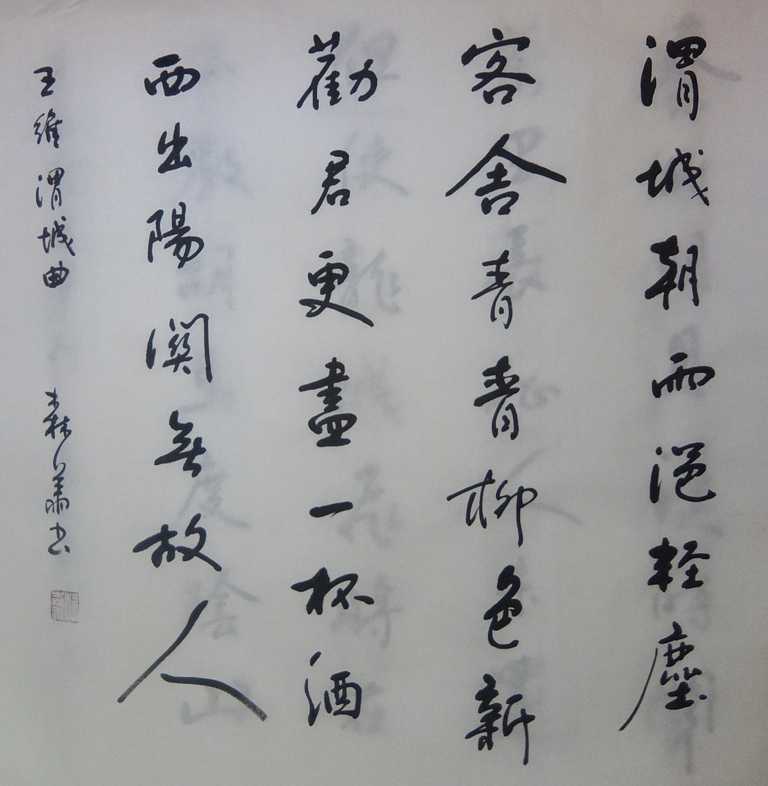 渭城朝雨浥輕塵
客舍青青柳色新
勸君更盡一杯酒
西出陽關無故人
王維渭城曲
森
書